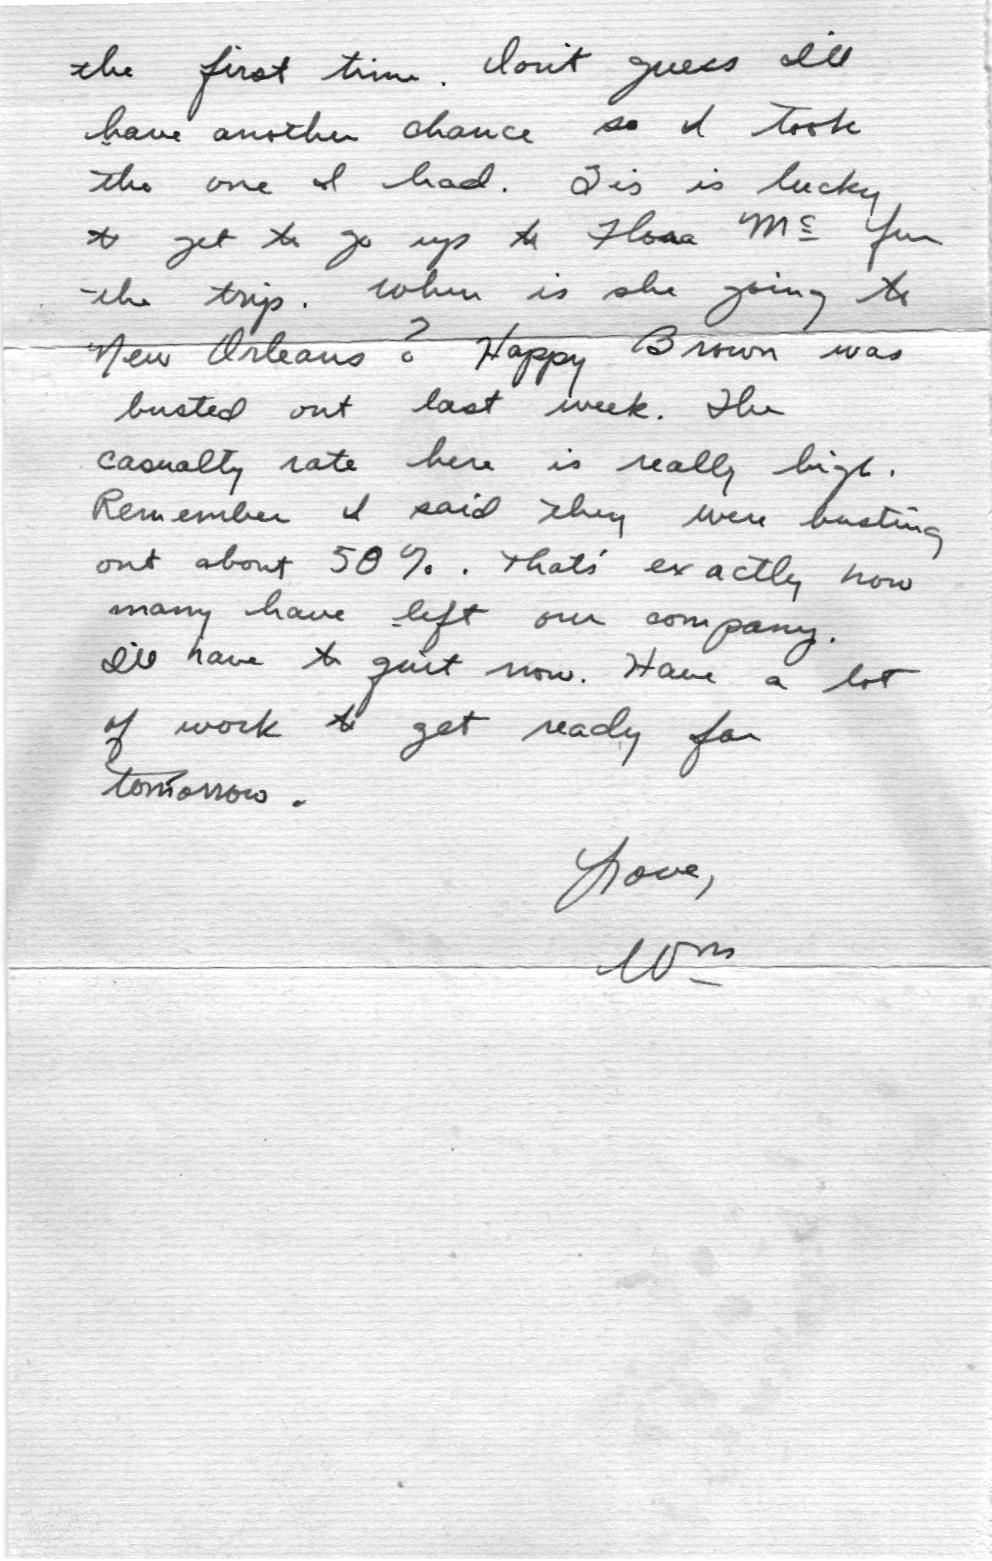 the first time. Don't guess I'll
have another chance so I took
the one I had. Sis is lucky
to get to go up to Flora Mc for
the trip. When is she going to
New Orleans? Happy Brown was
busted out last week. The
casualty rate here is really high.
Remember I said they were busting
out about 50%. That's exactly how
many have left our company.
I'll have to quit now. Have a lot
of work to get ready for
tomorrow.
Love,
Wm